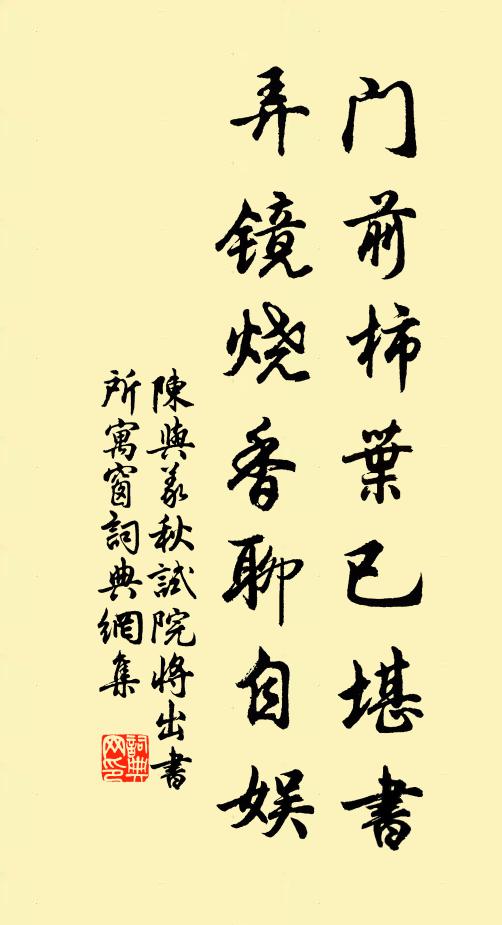 門前柿葉已堪書
弄镜烧香聊自娱
陳與義秋試院將出書
所寓窗詞典網集
詞典
网印